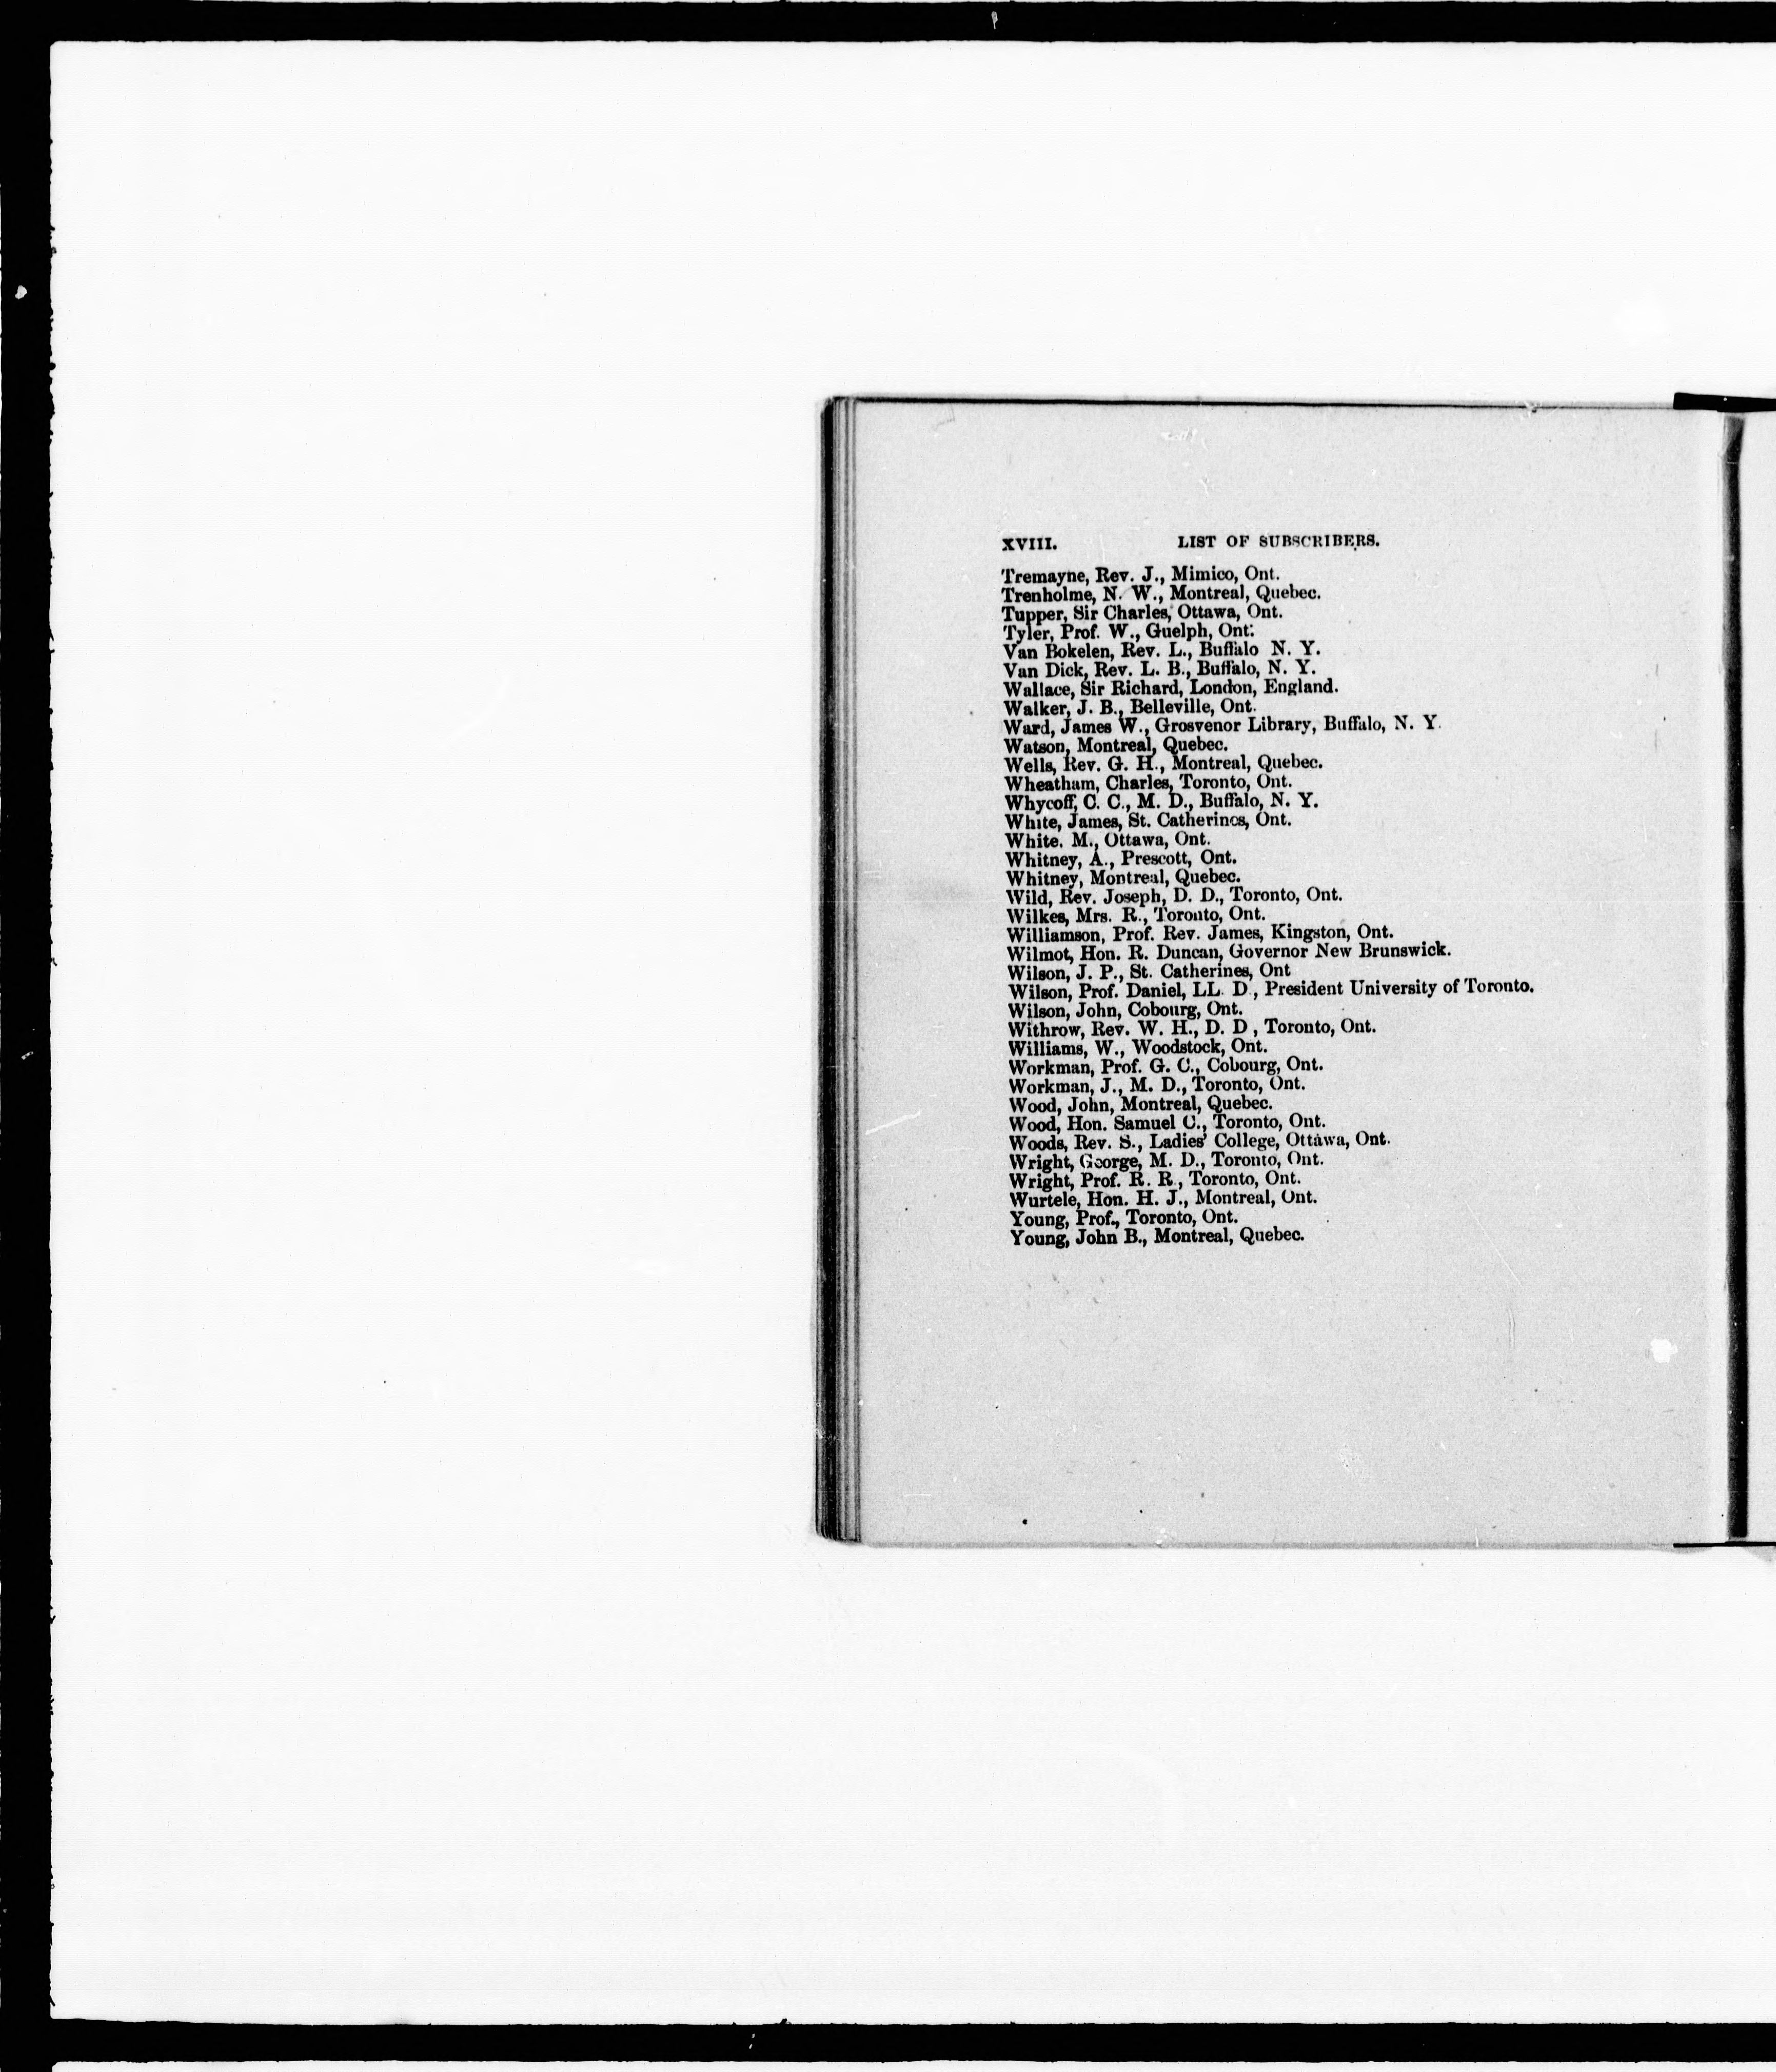 XVIII. LIST OF SUBSCRIBERS.
Tremayne, Rev. J., Mimico, Ont.
Trenholme, N. W., Montreal, Quebec.
Tupper, Sir Charles, Ottawa, Ont.
Tyler, Prof. W., Guelph, Ont.
Van Bokelen, Rev. L., Buffalo N. Y.
Van Dick, Rev. L. B., Buffalo, N. Y.
Wallace, Sir Richard, London, England.
Walker, J. B., Belleville, Ont.
Ward, James W., Grosvenor Library, Buffalo, N. Y.
Watson, Montreal, Quebec.
Wells, Rev. G. H., Montreal, Quebec.
Wheatham, Charles, Toronto, Ont.
Whycoff, C. C., M. D., Buffalo, N. Y.
White, James, St. Catherines, Ont.
White. M., Ottawa, Ont.
Whitney, A., Prescott, Ont.
Whitney, Montreal, Quebec.
Wild, Rev. Joseph, D. D., Toronto, Ont.
Wilkes, Mrs. R., Toronto, Ont.
Williamson, Prof. Rev. James, Kingston, Ont.
Wilmot, Hon. R. Duncan, Governor New Brunswick.
Wilson, J. P., St. Catherines, Ont
Wilson, Prof. Daniel, LL. D., President University of Toronto.
Wilson, John, Cobourg, Ont.
Withrow, Rev. W. H., D. D , Toronto, Ont.
Williams, W., Woodstock, Ont.
Workman, Prof. G. C., Cobourg, Ont.
Workman, J., M. D., Toronto, Ont.
Wood, John, Montreal, Quebec.
Wood, Hon. Samuel C., Toronto, Ont.
Woods, Rev. S., Ladies' College, Ottawa, Ont.
Wright, George, M. D., Toronto, Ont.
Wright, Prof. R. R., Toronto, Ont.
Wurtele, Hon. H. J., Montreal, Ont.
Young, Prof., Toronto, Ont.
Young, John B., Montreal, Quebec.